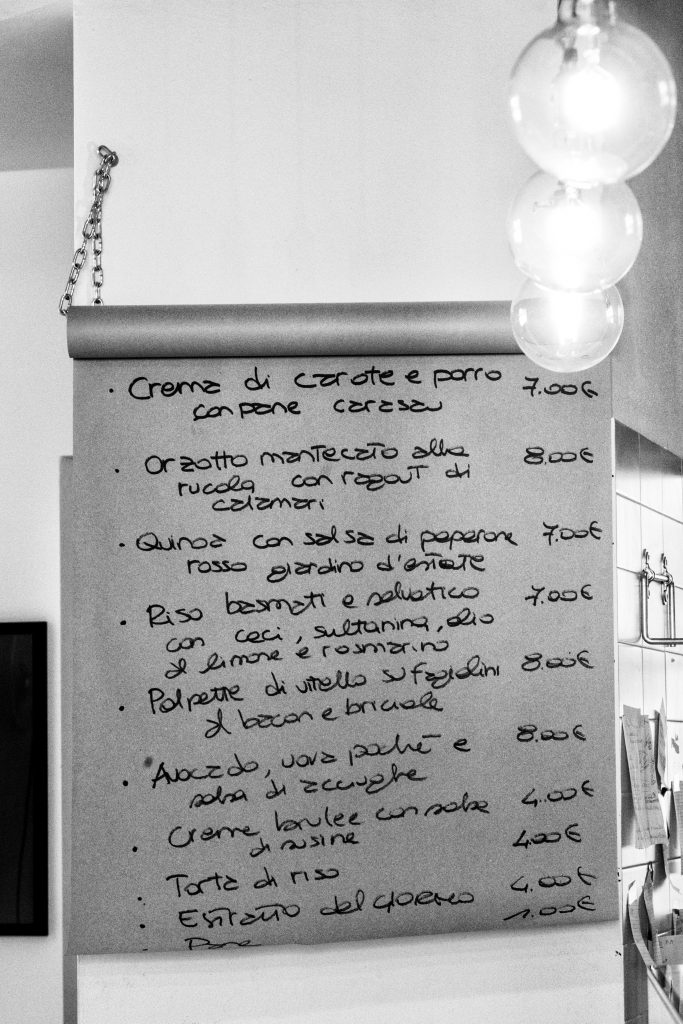 · Crema di carote e porro 7.00€
con pane carasau
· Orzotto mantecato alla 8.00€
rucola con ragout di
calamari
· Quinoa con salsa di peperone 7.00€
rosso giardino d'estate
· Riso basmati e selvatico 7.00€
con ceci, sultanina, olio
al limone e rosmarino
· Polpette di vitello su fagiolini 8.00€
al bacon e briciole
· Avocado, uova pochè e 8.00€
salsa di acciughe
· Creme brulee con salsa 4.00€
di susine 4.00€
· Torta di riso
· Estratto del GIORNO 4.00€
· Pane 1.00€